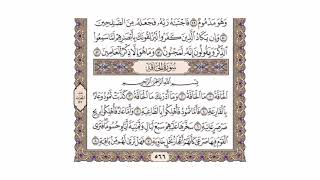 وَهُوَ مَذْمُومٌ ٤٩ فَٱجْتَبَٰهُ رَبُّهُۥ فَجَعَلَهُۥ مِنَ ٱلصَّٰلِحِينَ
٥٠ وَإِن يَكَادُ ٱلَّذِينَ كَفَرُوا۟ لَيُزْلِقُونَكَ بِأَبْصَٰرِهِمْ لَمَّا سَمِعُوا۟
ٱلذِّكْرَ وَيَقُولُونَ إِنَّهُۥ لَمَجْنُونٌ ٥١ وَمَا هُوَ إِلَّا ذِكْرٌ لِّلْعَٰلَمِينَ ٥٢
سُورَةُ الحَاقَّةِ
بِسْمِ ٱللَّهِ ٱلرَّحْمَٰنِ ٱلرَّحِيمِ
ٱلْحَآقَّةُ ١ مَا ٱلْحَآقَّةُ ٢ وَمَآ أَدْرَىٰكَ مَا ٱلْحَآقَّةُ ٣ كَذَّبَتْ ثَمُودُ وَعَادٌۢ
بِٱلْقَارِعَةِ ٤ فَأَمَّا ثَمُودُ فَأُهْلِكُوا۟ بِٱلطَّاغِيَةِ ٥ وَأَمَّا عَادٌ فَأُهْلِكُوا۟ بِرِيحٍ
صَرْصَرٍ عَاتِيَةٍ ٦ سَخَّرَهَا عَلَيْهِمْ سَبْعَ لَيَالٍ وَثَمَٰنِيَةَ أَيَّامٍ حُسُومًا فَتَرَى
ٱلْقَوْمَ فِيهَا صَرْعَىٰ كَأَنَّهُمْ أَعْجَازُ نَخْلٍ خَاوِيَةٍ ٧ فَهَلْ تَرَىٰ لَهُم مِّنۢ بَاقِيَةٍ ٨
٥٦٦